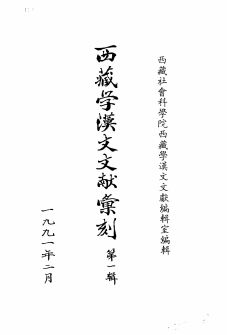 西藏社會科學院西藏學漢文文獻編輯室編輯
西藏学漢文文献彙刻
第一輯
一九九一年二月